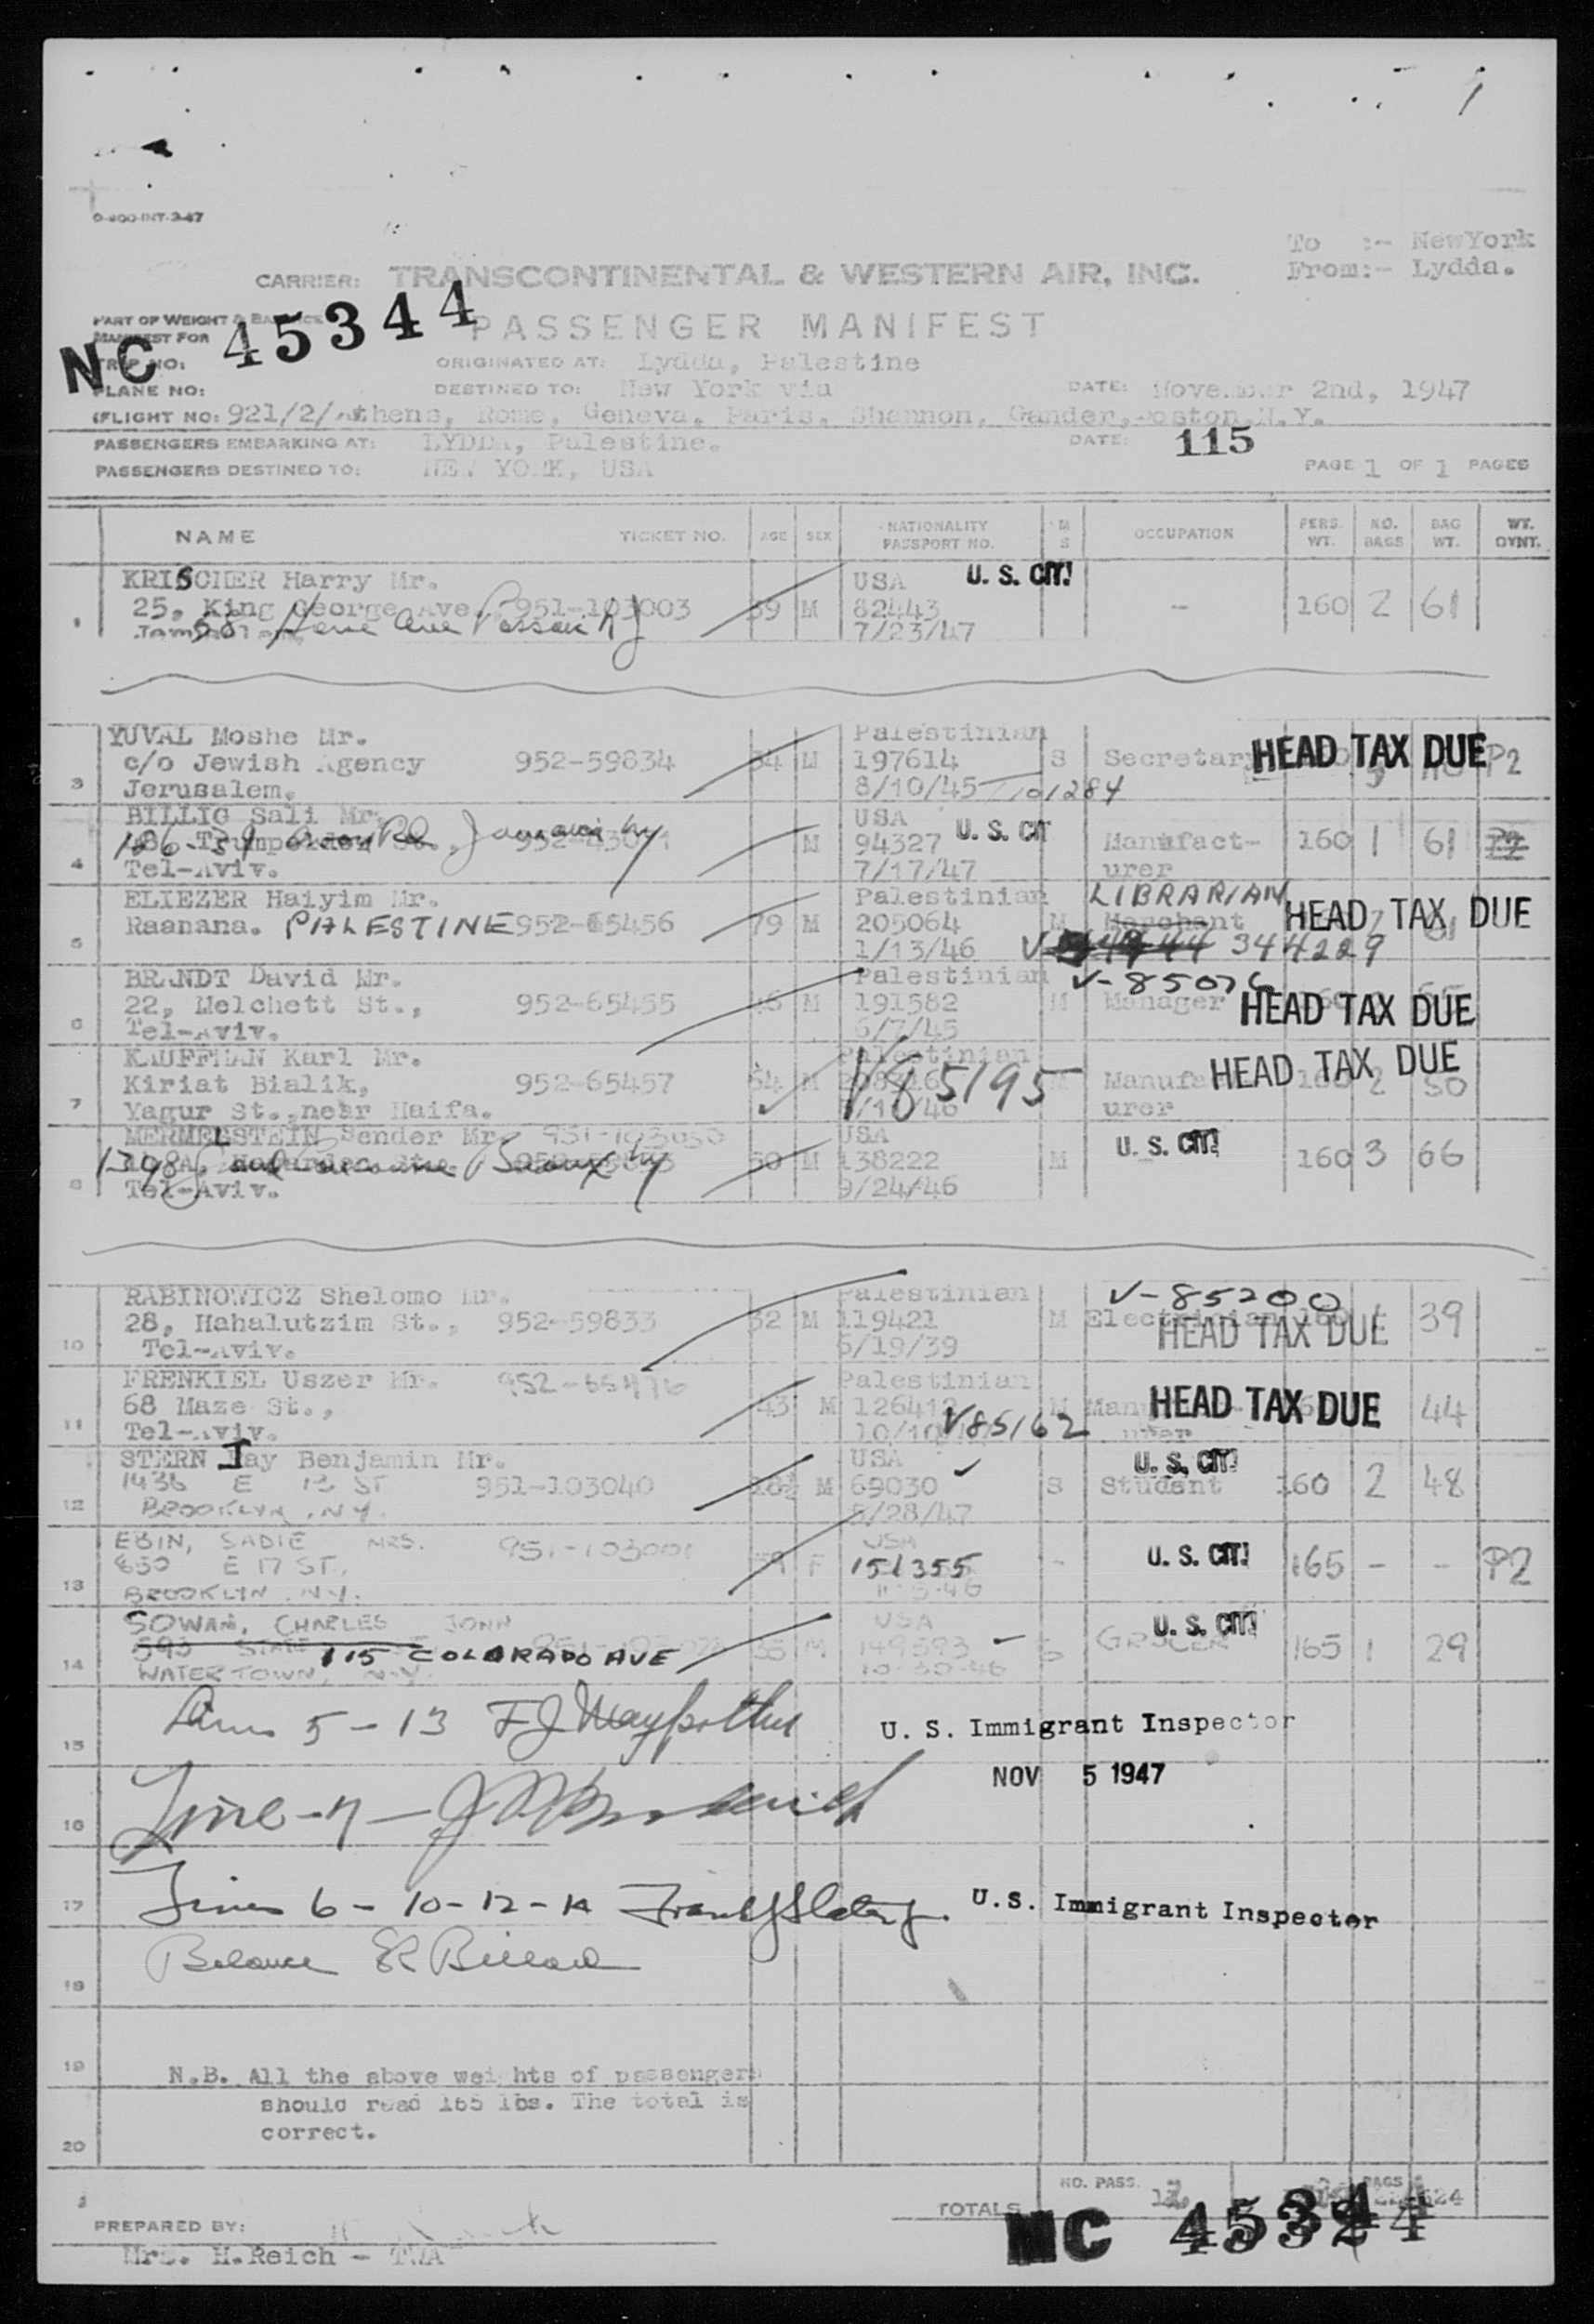 1
O-400-INT-3-47
To :- NewYork
From:- Lydda.
CARRIER: TRANSCONTINENTAL & WESTERN AIR, INC.
PART OF WEIGHT & BALANCE
MANIFEST FOR
PASSENGER MANIFEST
NC 45344
TRIP NO:
ORIGINATED AT: Lydda, Palestine
PLANE NO:
DESTINED TO: New York via
DATE: November 2nd, 1947
FLIGHT NO: 921/2/ Athens, Rome, Geneva, Paris, Shannon, Gander, Boston, N.Y.
PASSENGERS EMBARKING AT: LYDDA, Palestine.
DATE: 115
PASSENGERS DESTINED TO: NEW YORK, USA
PAGE 1 OF 1 PAGES
NAME TICKET NO. AGE SEX NATIONALITY PASSPORT NO. M S OCCUPATION PERS. WT. NO. BAGS BAG WT. WT. OVNT.
KRISCHER Harry Mr. USA U. S. CIT.
1 25, King George Ave. 951-103003 39 M 82443 - 160 2 61
58 Ave Passaic NJ 7/23/47
YUVAL Moshe Mr. Palestinian
c/o Jewish Agency 952-59834 34 M 197614 S Secretary HEAD TAX DUE P2
3 Jerusalem. 8/10/45
BILLIG Sali Mr. USA U. S. CIT
Jamaica NY M 94327 Manufact- 160 1 61
4 Tel-Aviv. 7/17/47 urer
ELIEZER Haiyim Mr. Palestinian LIBRARIAN
Raanana. PALESTINE 952-65456 79 M 205064 M Merchant HEAD TAX DUE
5 1/13/46 344229
BRANDT David Mr. Palestinian V-85076
22, Melchett St., 952-65455 46 M 191582 M Manager HEAD TAX DUE
6 Tel-Aviv. 6/7/45
KAUFFMAN Karl Mr. Palestinian
Kiriat Bialik, 952-65457 54 M V85195 HEAD TAX DUE 2 50
7 Yagur St., near Haifa. urer
MERMELSTEIN Sender Mr. 951-103050 USA U. S. CIT.
Bronx NY 50 M 138222 M 160 3 66
8 Tel-Aviv. 9/24/46
RABINOWICZ Shelomo Mr. Palestinian V-85200
28, Hahalutzim St., 952-59833 32 M 119421 M Electrician HEAD TAX DUE 39
10 Tel-Aviv. 6/19/39
FRENKIEL Uszer Mr. 952-65476 Palestinian
68 Maze St., 43 M M HEAD TAX DUE 44
11 Tel-Aviv. V85162
STERN Jay Benjamin Mr. USA U. S. CIT.
1436 E 13 ST 951-103040 18½ M 69030 S Student 160 2 48
12 BROOKLYN, N.Y. 5/28/47
EBIN, SADIE MRS. 951-103001 USA
850 E 17 ST. F 151355 - U. S. CIT. 165 - - P2
13 BROOKLYN, N.Y.
SOWAN, CHARLES JOHN USA U. S. CIT.
593 STATE 115 COLORADO AVE 35 M 149593 S GROCER 165 1 29
14 WATERTOWN, N.Y. 10-30-46
15 Lines 5-13 U. S. Immigrant Inspector
NOV 5 1947
16 Line-7-
17 Lines 6-10-12-14 U.S. Immigrant Inspector
Balance
18
19 N.B. All the above weights of passengers
should read 165 lbs. The total is
20 correct.
TOTALS NO. PASS. BAGS
PREPARED BY:
NC 45344
Mrs. H.Reich - TWA